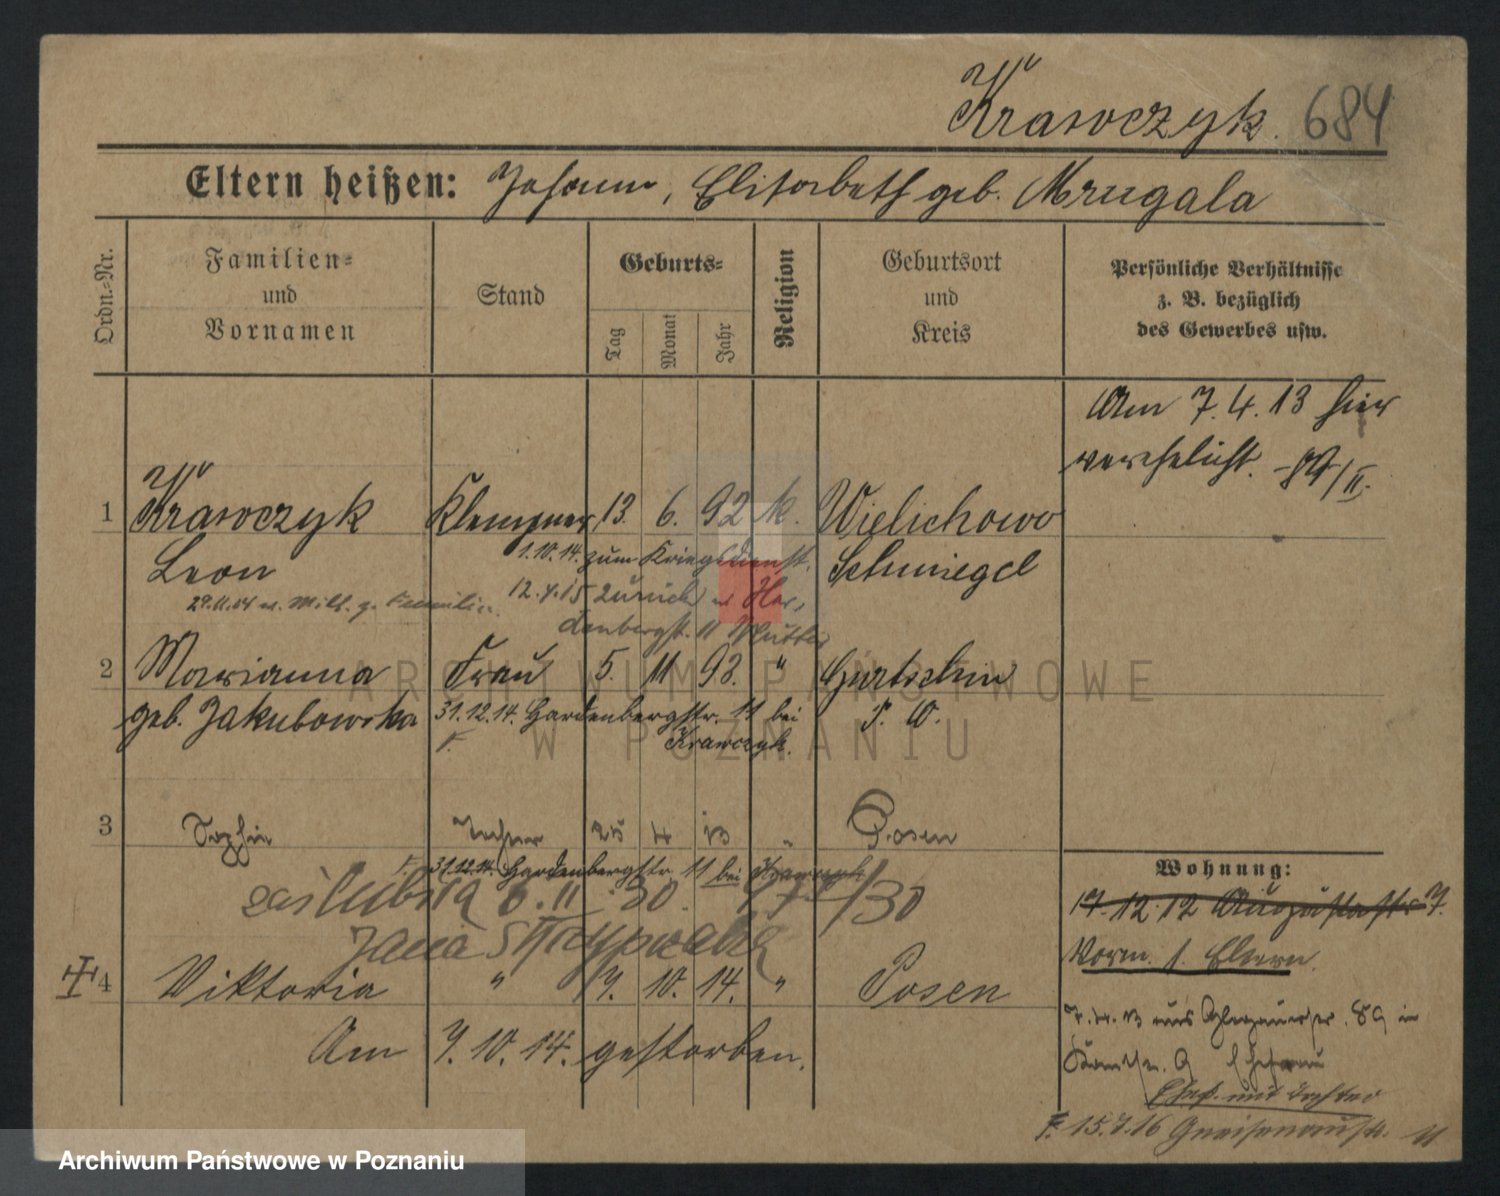 Krawczyk. 684
Eltern heißen: Johann, Elisabeth geb. Mrugala
Ordn.-Nr.
Familien-
und
Vornamen
Stand
Geburts-
Tag
Monat
Jahr
Religion
Geburtsort
und
Kreis
Persönliche Verhältnisse
z. B. bezüglich
des Gewerbes usw.
Am 7.4.13 hier
verehelicht.
1 Krawczyk Klempner 13. 6. 92 k. Wielichowo
Leon 1.10.14. zum Kriegsdienst. Schmiegel
12.4.15 zurück
denbergst. 11 Mutter
2 Marianna Frau 5. 11 93. " Gurtschin
geb. Jakubowska 31.12.14. Hardenbergstr. 11 bei P. W.
F. Krawczyk.
3 Sophie Tochter 25 4 13 " Posen
F. 31.12.14. Hardenbergstr. 11 bei Krawczyk
zaślubiła 6.11.30.
Jana
4 Viktoria " 7. 10. 14. " Posen
Am 7.10.14. gestorben.
Wohnung:
17.12.12 Augustastr 7.
Vorm. s. Eltern.
7.4.13 aus 89 in
9 Ehefrau
Ehef. mit Tochter
F. 15.7.16 Gneisenaustr. 11
ARCHIWUM PAŃSTWOWE
W POZNANIU
Archiwum Państwowe w Poznaniu